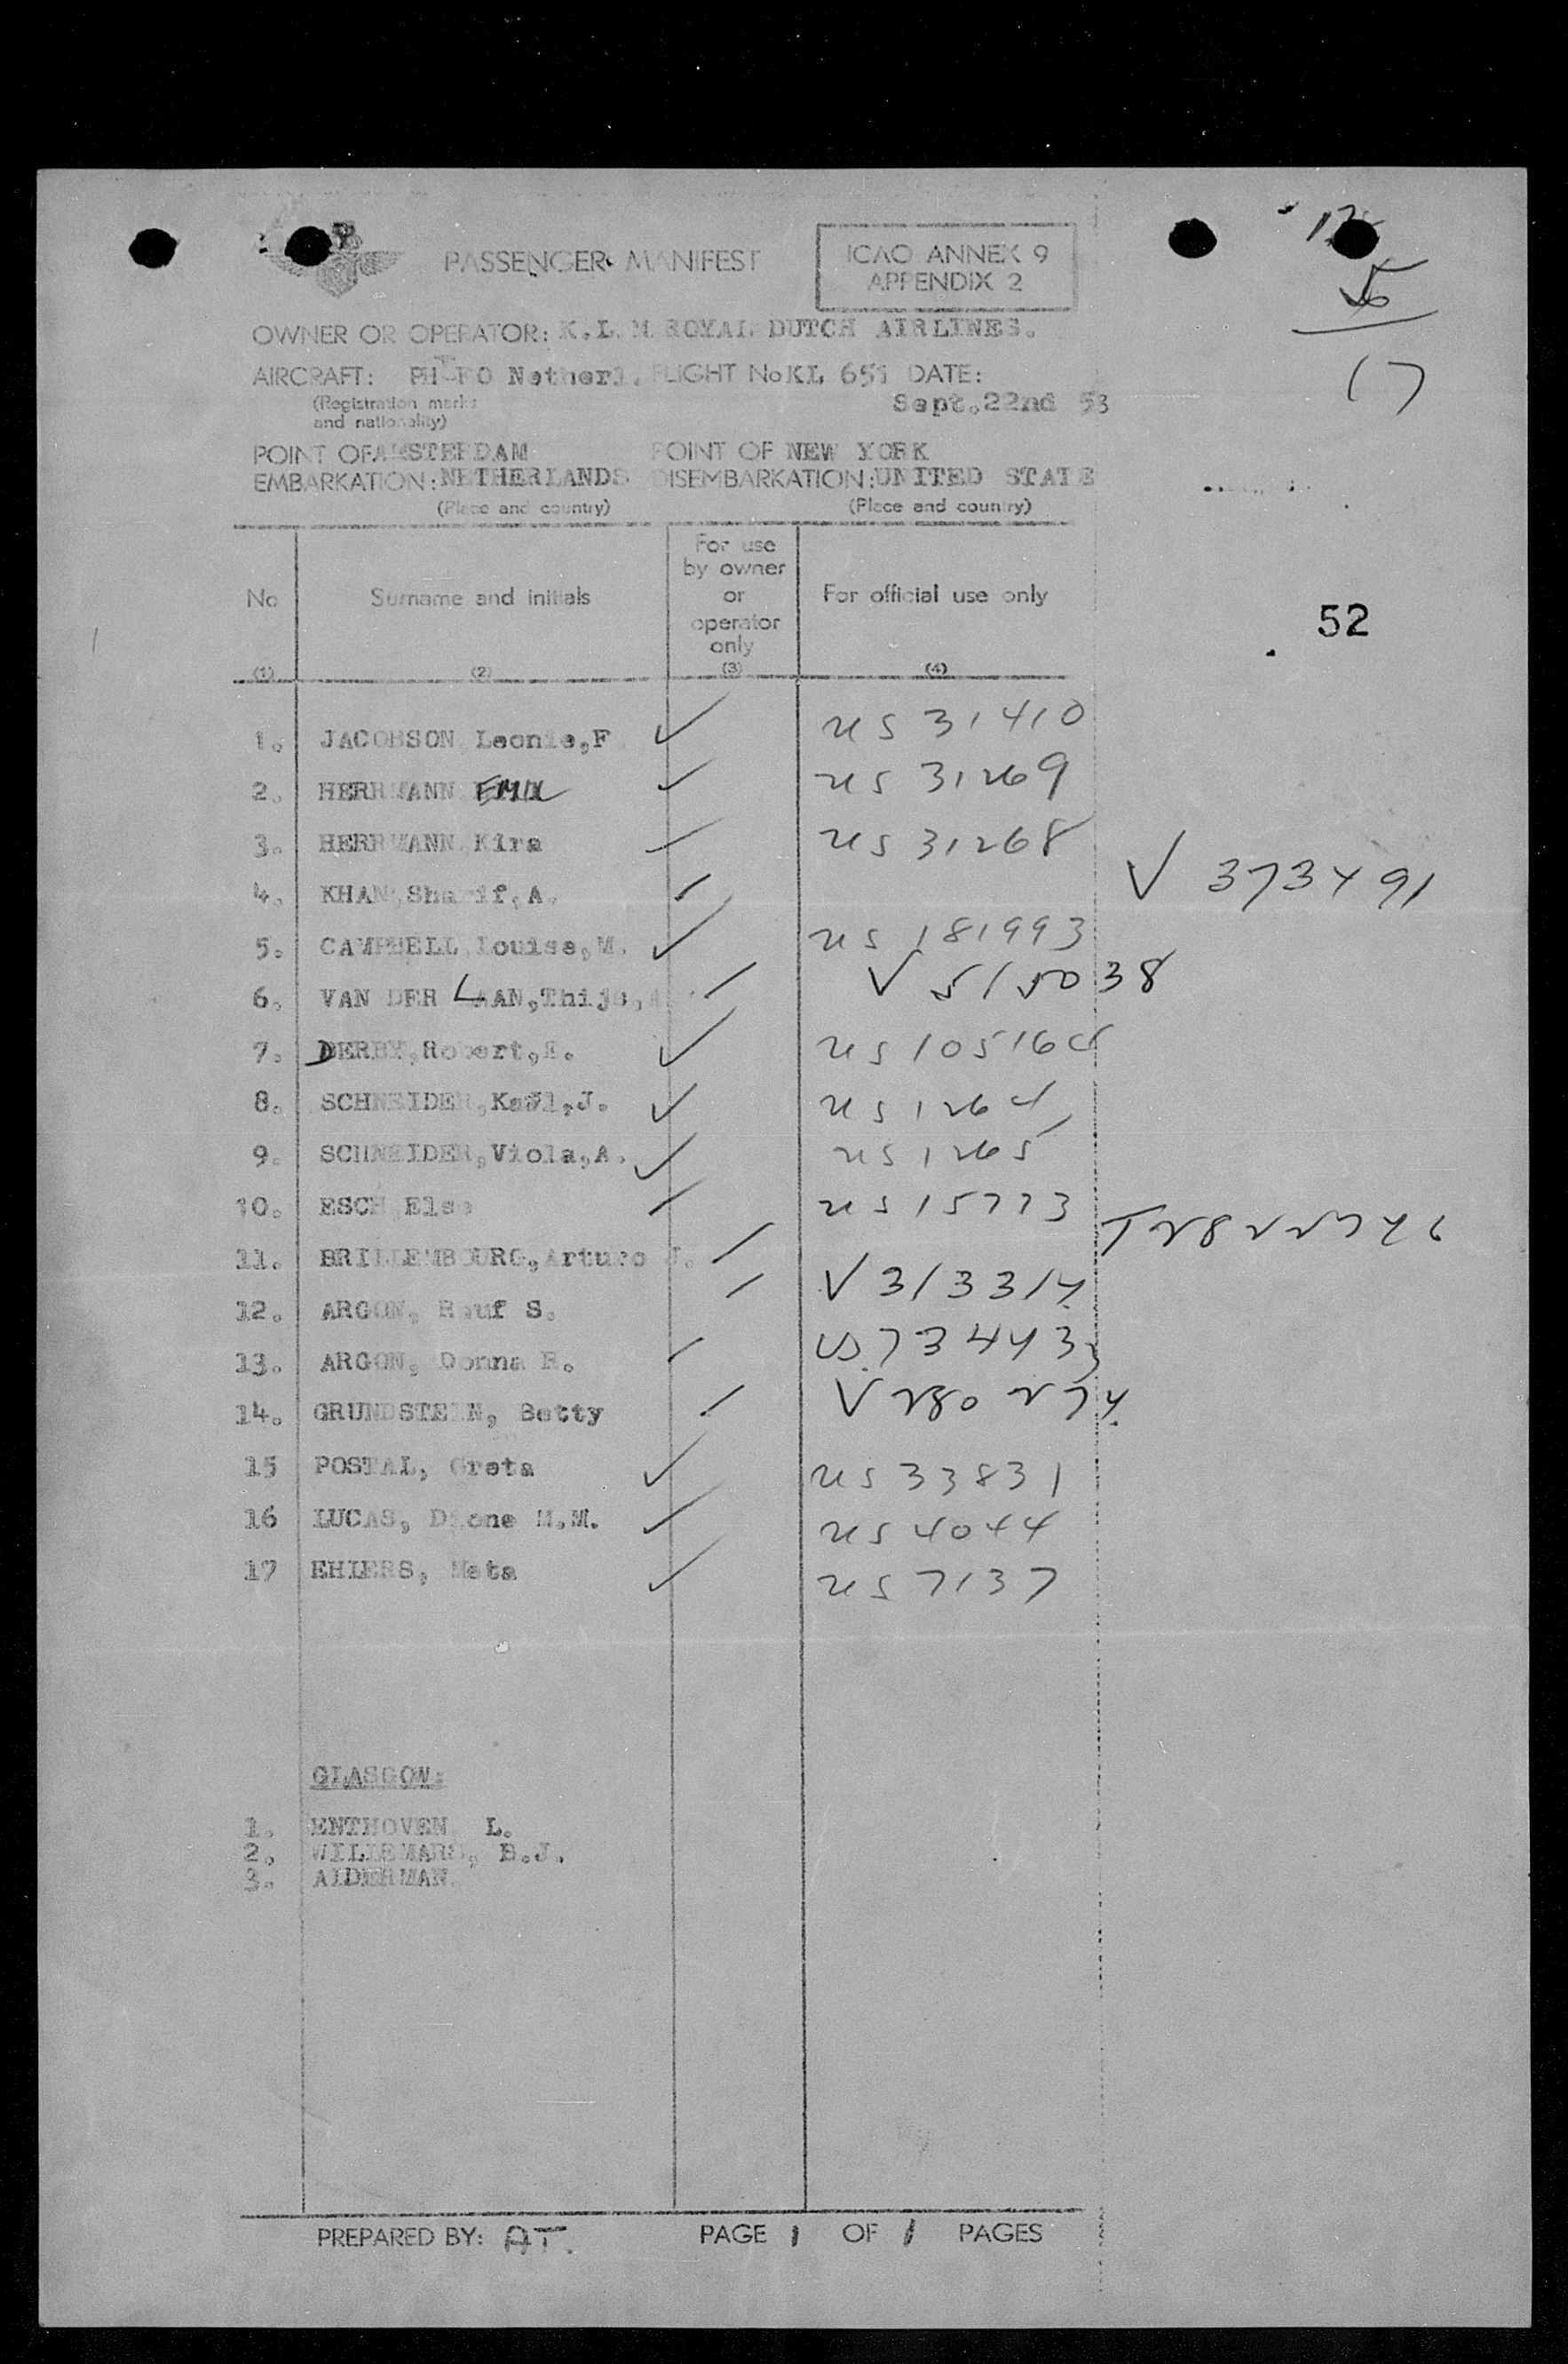 PASSENGER MANIFEST
ICAO ANNEX 9
APPENDIX 2
OWNER OR OPERATOR: K.L.M. ROYAL DUTCH AIRLINES.
AIRCRAFT: Netherl. FLIGHT No KL 651 DATE:
(Registration marks
and nationality)
Sept. 22nd 53
POINT OF AMSTERDAM POINT OF NEW YORK
EMBARKATION: NETHERLANDS DISEMBARKATION: UNITED STATE
(Place and country) (Place and country)
No Surname and initials For use by owner or operator only For official use only
(1) (2) (3) (4)
17
52
1. JACOBSON Leonie,F us 31410
2. HERRMANN EMIL us 31269
3. HERRMANN Kira us 31268
4. KHAN, Sharif, A. V 373491
5. CAMPBELL Louise, M. us 181993
6. VAN DER LAAN, Thijs, V 515038
7. DERBY, Robert, us 105164
8. SCHNEIDER, Karl, J. us 1264
9. SCHNEIDER, Viola, A. us 1265
10. ESCH Else us 15773
11. BRILLEMBOURG, Arturo J.
12. ARGON, Rauf S. V 313314
13. ARGON, Donna R. us 73443
14. GRUNDSTEIN, Betty V 280274
15 POSTAL, Greta us 33831
16 LUCAS, Dione M.M. us 4044
17 EHLERS, Meta us 7137
GLASGOW:
1. ENTHOVEN L.
2. WILLEMARS, B.J.
3. ALDERMAN.
PREPARED BY: AT. PAGE 1 OF 1 PAGES